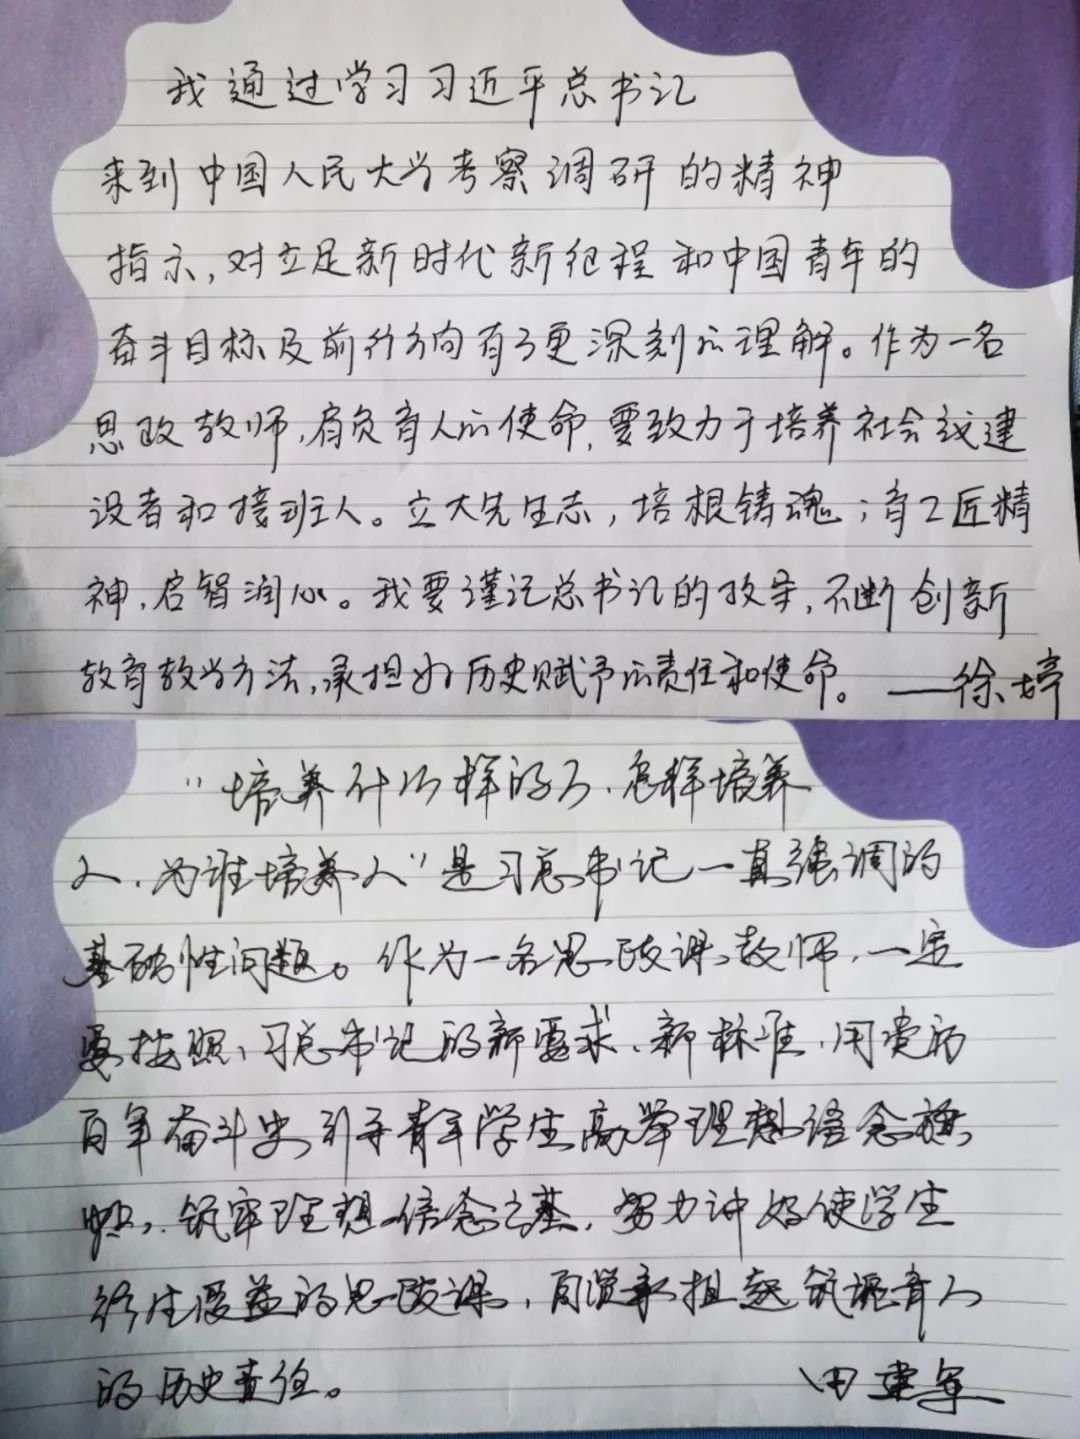 我通过学习习近平总书记
来到中国人民大学考察调研的精神
指示,对立足新时代新征程和中国青年的
奋斗目标及前行方向有了更深刻的理解。作为一名
思政教师,肩负育人的使命,要致力于培养社会主义建
设者和接班人。立大先生志,培根铸魂;育工匠精
神,启智润心。我要谨记总书记的教导,不断创新
教育教学方法,承担好历史赋予的责任和使命。——徐婷
“培养什么样的人、怎样培养
人、为谁培养人”是习总书记一直强调的
基础性问题。作为一名思政课教师,一定
要按照习总书记的新要求、新标准,用党的
百年奋斗史引导青年学生高举理想信念旗
帜,筑牢理想信念之基,努力讲好使学生
终生受益的思政课,自觉承担起筑魂育人
的历史责任。 田建军